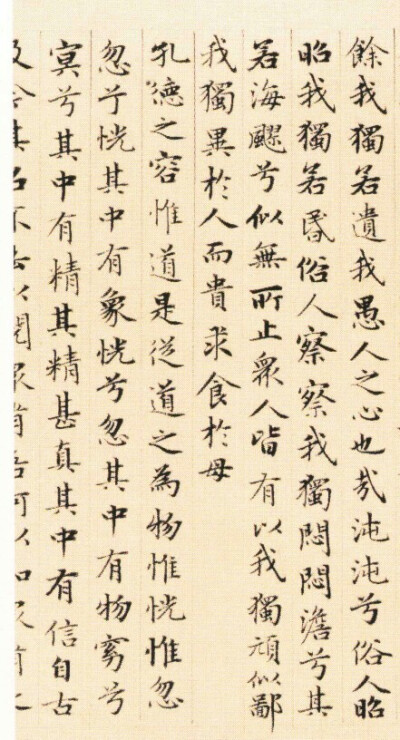 餘我獨若遺我愚人之心也哉沌沌兮俗人昭
昭我獨若昏俗人察察我獨悶悶澹兮其
若海飂兮似無所止衆人皆有以我獨頑似鄙
我獨異於人而貴求食於母
孔德之容惟道是從道之為物惟恍惟忽
忽兮恍其中有象恍兮忽其中有物窈兮
冥兮其中有精其精甚真其中有信自古
及今其名不去以閱衆甫吾何以知衆甫之